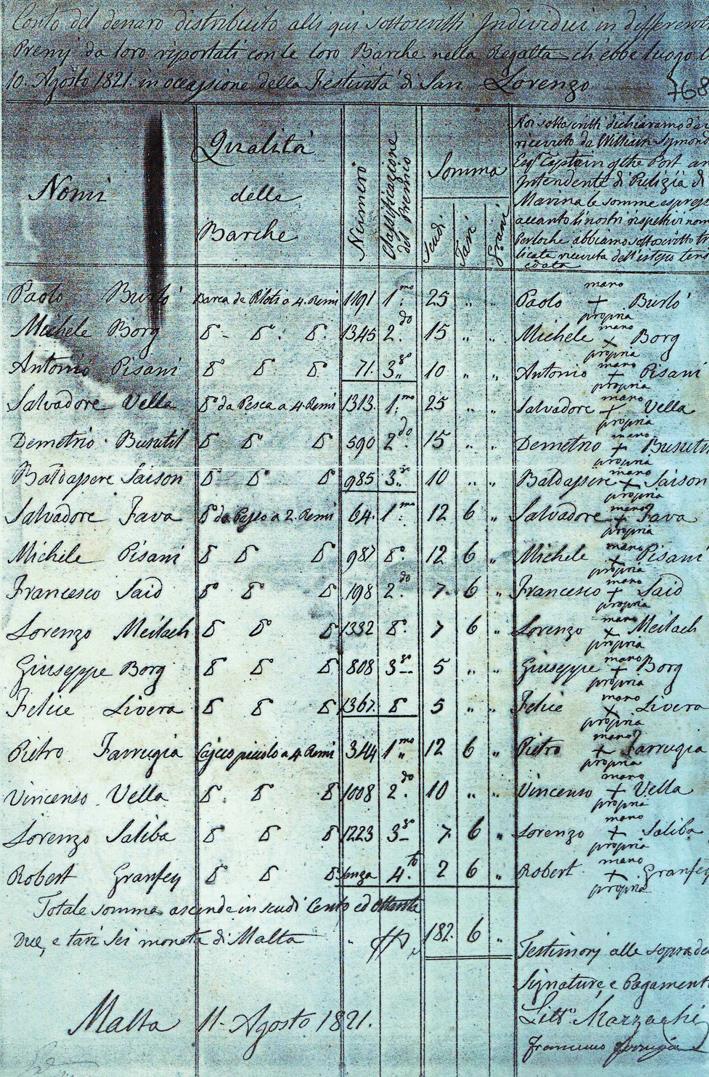 Conto del denaro distribuito alli qui sottoscritti Individui in differenti
Premj da loro riportati con le loro Barche nella Regatta ch'ebbe luogo
10. Agosto 1821. in occasione della Festività di San Lorenzo
768
Nomi
Qualità delle Barche
Numero
Classificazione del premio
Somma
Scudi
Tarì
Grani
Noi sottoscritti dichiariamo
ricevuto da William Symond
Esqr. Captain of the Port an
Intendente di Pulizia di
Marina le somme espresse
accanto i nostri rispettivi nom
perloche abbiamo sottoscritto
licate ricevuta dell'istesso
data
Paolo Burlò Barca de Piloti a 4. Remi 1191 1.mo 25 " " Paolo mano + propria Burlò
Michele Borg δ - δ. δ. 1345 2.do 15 " " Michele mano + propria Borg
Antonio Pisani δ δ δ 71. 3.zo 10 " " Antonio mano + propria Pisani
Salvadore Vella δ da Pesca a 4. Remi 1313. 1.mo 25 " " Salvadore mano + propria Vella
Demetrio Busutil δ δ δ 590 2.do 15 " " Demetrio mano + propria Busuti
Baldassere Saison δ δ δ 985 3.zo 10 " " Baldassere mano + propria Saison
Salvadore Fava δ da Pesca a 2. Remi 64. 1.mo 12 6 " Salvadore mano + propria Fava
Michele Pisani δ δ δ 987 δ. 12 6 " Michele mano + propria Pisani
Francesco Said δ δ δ 198 2.do 7. 6 " Francesco mano + propria Said
Lorenzo Meilach δ δ δ 1332 δ. 7 6 " Lorenzo mano + propria Meilach
Giuseppe Borg δ δ δ 808 3.zo 5 " " Giuseppe mano + propria Borg
Felice Livera δ δ δ 1367. δ 5 " " Felice mano + propria Livera
Pietro Farrugia Cajcco piccolo a 4. Remi 344 1.mo 12 6 " Pietro mano + propria Farrugia
Vincenso Vella δ δ δ 1008 2.do 10 " " Vincenso mano + propria Vella
Lorenzo Saliba δ δ δ 1223 3.zo 7. 6 " Lorenzo mano + propria Saliba
Robert Granfey δ δ δ Senza 4.to 2 6 " Robert mano + propria Granfey
Totale somma ascende in scudi Cento ed ottanta
Due, e tarì Sei moneta di Malta 182. 6
Testimonj alle sopradette
Signature e Pagament
Malta 11. Agosto 1821.
Francesco Farrugia